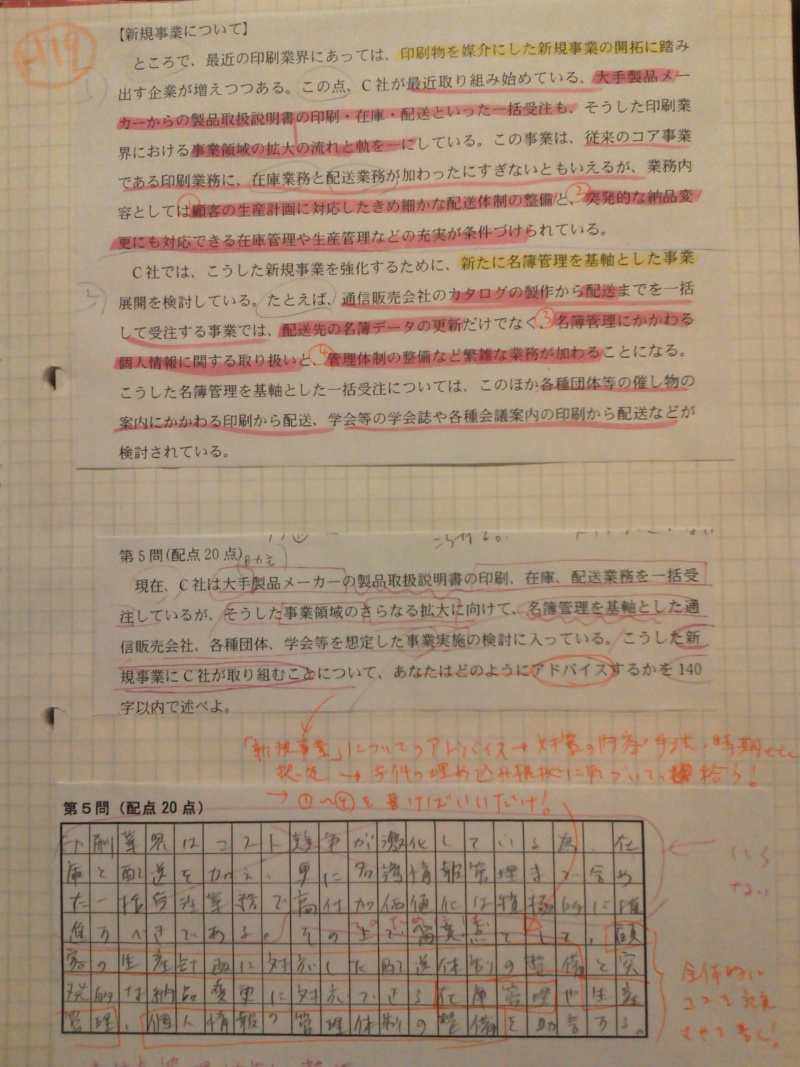 H19
【新規事業について】
ところで、最近の印刷業界にあっては、印刷物を媒介にした新規事業の開拓に踏み
出す企業が増えつつある。この点、C社が最近取り組み始めている、大手製品メー
カーからの製品取扱説明書の印刷・在庫・配送といった一括受注も、そうした印刷業
界における事業領域の拡大の流れと軌を一にしている。この事業は、従来のコア事業
である印刷業務に、在庫業務と配送業務が加わったにすぎないともいえるが、業務内
容としては①顧客の生産計画に対応したきめ細かな配送体制の整備と、②突発的な納品変
更にも対応できる在庫管理や生産管理などの充実が条件づけられている。
C社では、こうした新規事業を強化するために、新たに名簿管理を基軸とした事業
展開を検討している。たとえば、通信販売会社のカタログの製作から配送までを一括
して受注する事業では、配送先の名簿データの更新だけでなく、③名簿管理にかかわる
個人情報に関する取り扱いと、④管理体制の整備など繁雑な業務が加わることになる。
こうした名簿管理を基軸とした一括受注については、このほか各種団体等の催し物の
案内にかかわる印刷から配送、学会等の学会誌や各種会議案内の印刷から配送などが
検討されている。
第5問(配点20点)
現在、C社は大手製品メーカーの製品取扱説明書の印刷、在庫、配送業務を一括受
注しているが、そうした事業領域のさらなる拡大に向けて、名簿管理を基軸とした通
信販売会社、各種団体、学会等を想定した事業実施の検討に入っている。こうした新
規事業にC社が取り組むことについて、あなたはどのようにアドバイスするかを140
字以内で述べよ。
「新規事業」についてのアドバイス→対策の内容、手法、時期etc
想定→与件の埋め込み根拠に基づいて拾う!
→①〜④を書けばいいだけ!
第5問(配点20点)
印刷業界はコスト競争が激化している為、在
庫と配送を加え、更に名簿情報管理まで含め
た一括受注業務で高付加価値化は積極的に推
進すべきである。その上で留意点として、顧
客の生産計画に対応した配送体制の整備と突
発的な納品変更に対応できる在庫管理や生産
管理、個人情報の管理体制の整備を助言する。
いら
ない
全体的に
ココを充実
させて書く!